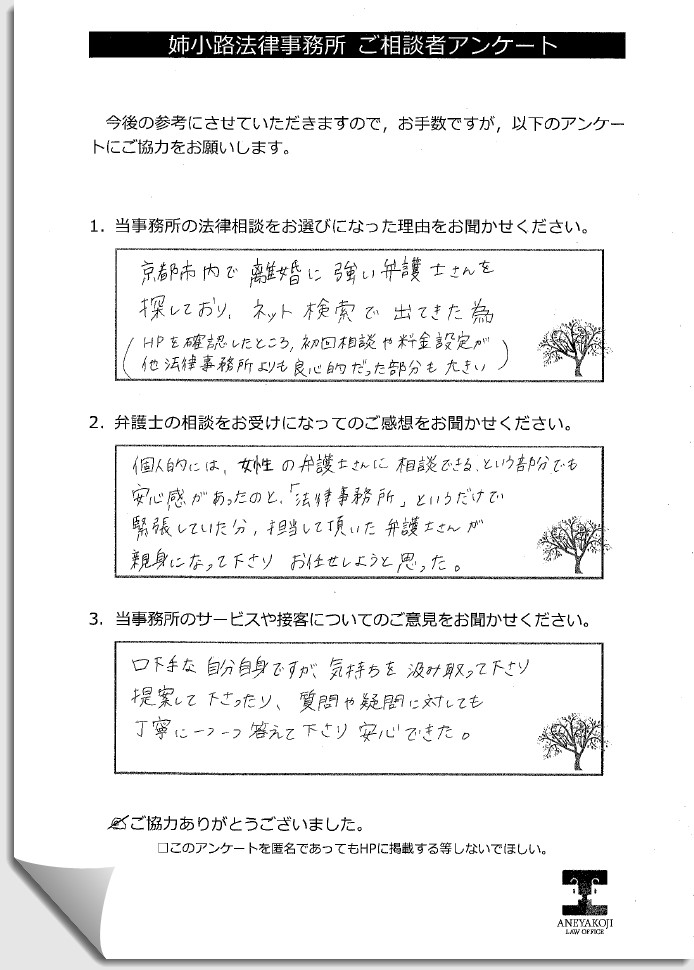 姉小路法律事務所 ご相談者アンケート
今後の参考にさせていただきますので，お手数ですが，以下のアンケー
トにご協力をお願いします。
1. 当事務所の法律相談をお選びになった理由をお聞かせください。
京都市内で離婚に強い弁護士さんを
探しており、ネット検索で出てきた為
(HPを確認したところ,初回相談や料金設定が
他法律事務所よりも良心的だった部分も大きい)
2. 弁護士の相談をお受けになってのご感想をお聞かせください。
個人的には、女性の弁護士さんに相談できる、という部分でも
安心感があったのと、「法律事務所」というだけで
緊張していた分，担当して頂いた弁護士さんが
親身になって下さり お任せしようと思った。
3. 当事務所のサービスや接客についてのご意見をお聞かせください。
口下手な自分自身ですが、気持ちを汲み取って下さり
提案して下さったり、質問や疑問に対しても
丁寧に一つ一つ答えて下さり安心できた。
✍ご協力ありがとうございました。
□このアンケートを匿名であってもHPに掲載する等しないでほしい。
ANEYAKOJI
LAW OFFICE